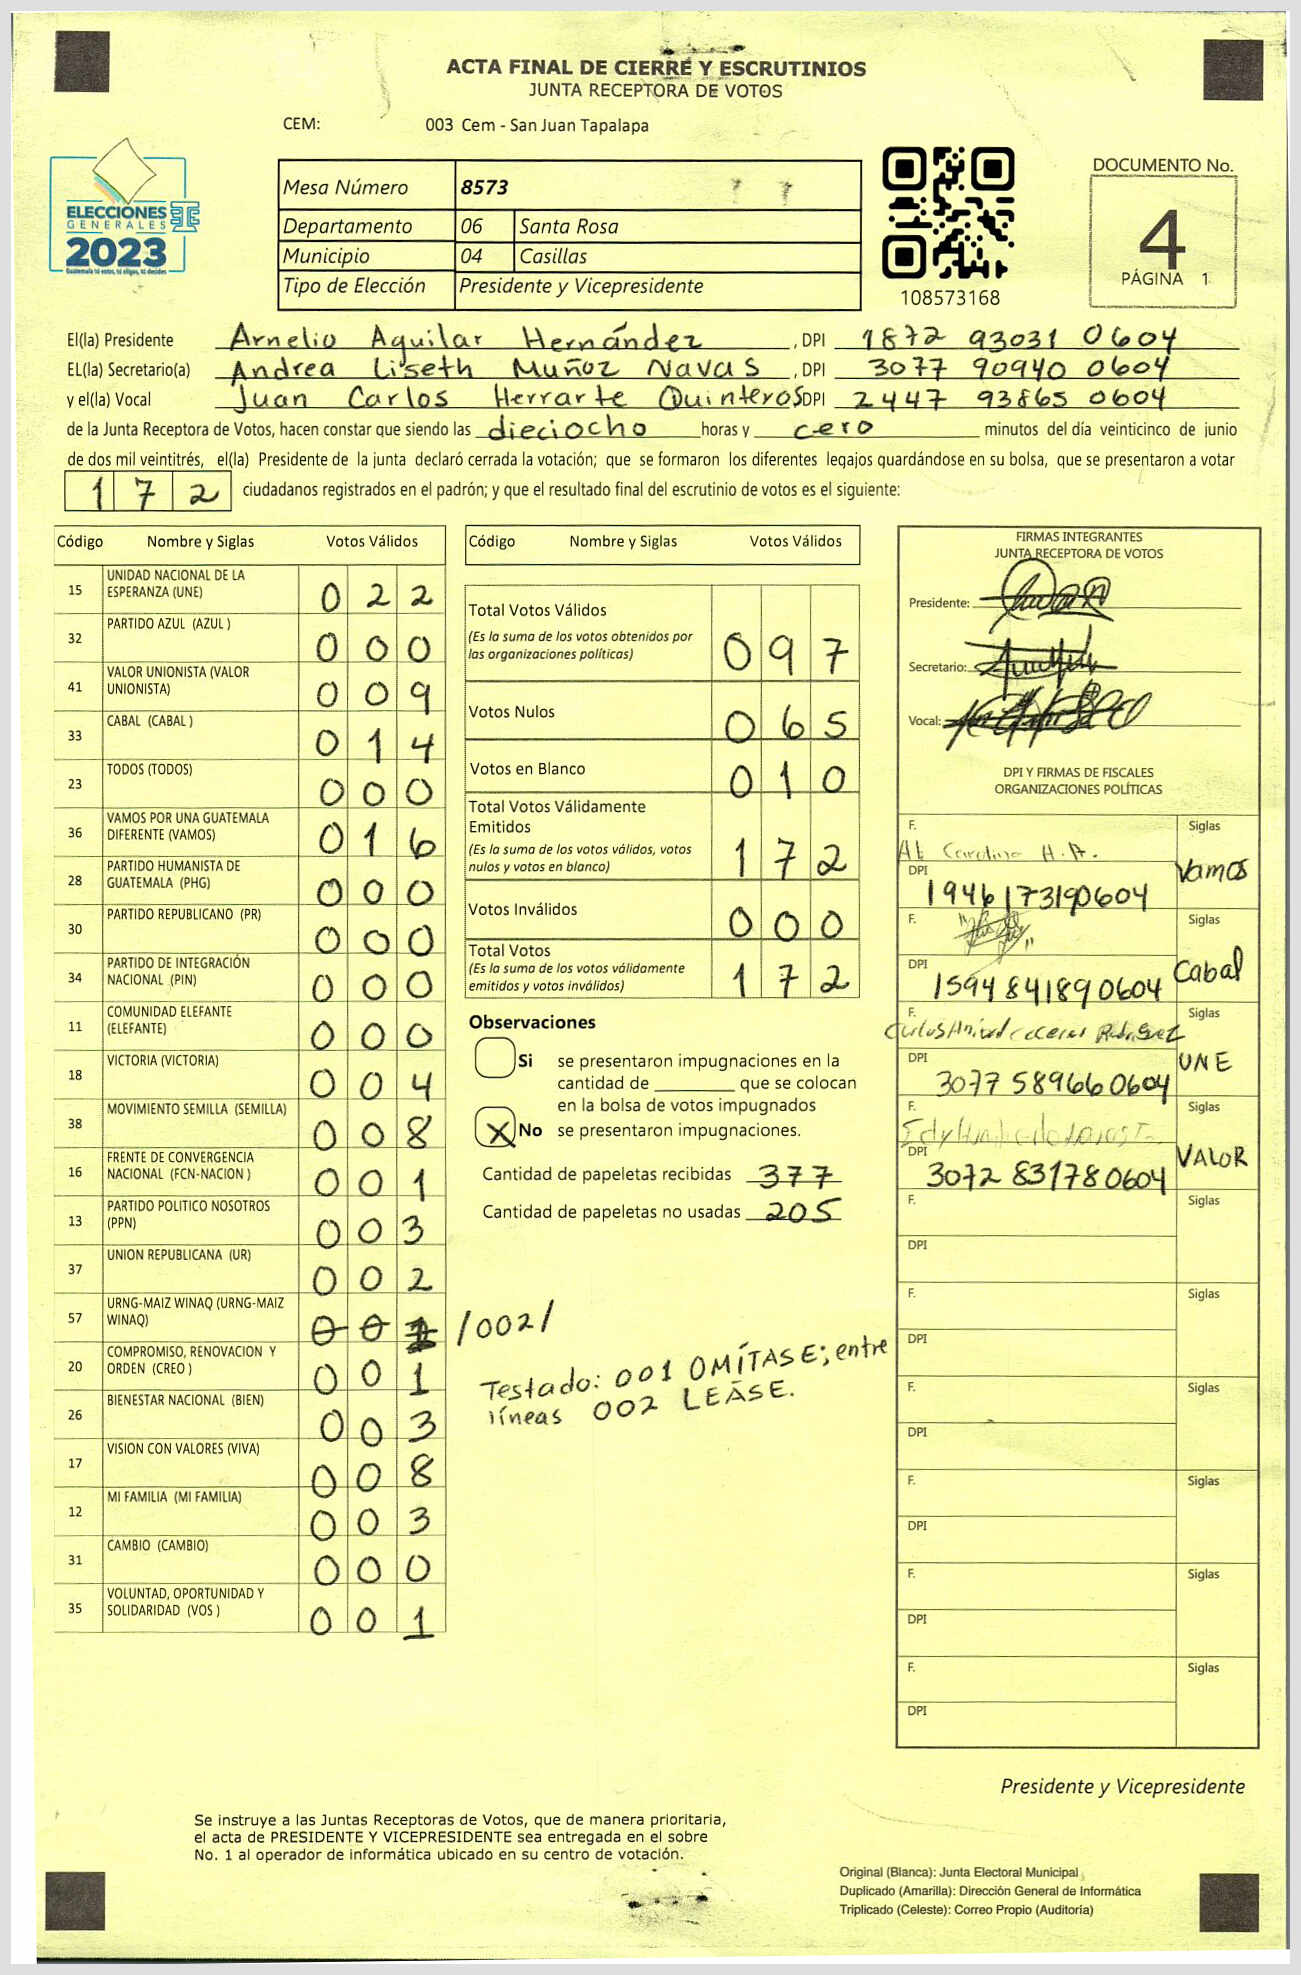 ACTA FINAL DE CIERRE Y ESCRUTINIOS
JUNTA RECEPTORA DE VOTOS
CEM: 003 Cem - San Juan Tapalapa
ELECCIONES
GENERALES
2023
Guatemala tú votas, tú eliges, tú decides
Mesa Número 8573
Departamento 06 Santa Rosa
Municipio 04 Casillas
Tipo de Elección Presidente y Vicepresidente
108573168
DOCUMENTO No.
4
PÁGINA 1
El(la) Presidente Arnelio Aguilar Hernández, DPI 1872 93031 0604
EL(la) Secretario(a) Andrea Liseth Muñoz Navas, DPI 3077 90940 0604
y el(la) Vocal Juan Carlos Herrarte Quinteros DPI 2447 93865 0604
de la Junta Receptora de Votos, hacen constar que siendo las dieciocho horas y cero minutos del día veinticinco de junio
de dos mil veintitrés, el(la) Presidente de la junta declaró cerrada la votación; que se formaron los diferentes legajos guardándose en su bolsa, que se presentaron a votar
172 ciudadanos registrados en el padrón; y que el resultado final del escrutinio de votos es el siguiente:
Código Nombre y Siglas Votos Válidos
15 UNIDAD NACIONAL DE LA ESPERANZA (UNE) 022
32 PARTIDO AZUL (AZUL ) 000
41 VALOR UNIONISTA (VALOR UNIONISTA) 009
33 CABAL (CABAL ) 014
23 TODOS (TODOS) 000
36 VAMOS POR UNA GUATEMALA DIFERENTE (VAMOS) 016
28 PARTIDO HUMANISTA DE GUATEMALA (PHG) 000
30 PARTIDO REPUBLICANO (PR) 000
34 PARTIDO DE INTEGRACIÓN NACIONAL (PIN) 000
11 COMUNIDAD ELEFANTE (ELEFANTE) 000
18 VICTORIA (VICTORIA) 004
38 MOVIMIENTO SEMILLA (SEMILLA) 008
16 FRENTE DE CONVERGENCIA NACIONAL (FCN-NACION ) 001
13 PARTIDO POLITICO NOSOTROS (PPN) 003
37 UNION REPUBLICANA (UR) 002
57 URNG-MAIZ WINAQ (URNG-MAIZ WINAQ) 001 /002/
20 COMPROMISO, RENOVACION Y ORDEN (CREO ) 001
26 BIENESTAR NACIONAL (BIEN) 003
17 VISION CON VALORES (VIVA) 008
12 MI FAMILIA (MI FAMILIA) 003
31 CAMBIO (CAMBIO) 000
35 VOLUNTAD, OPORTUNIDAD Y SOLIDARIDAD (VOS ) 001
Código Nombre y Siglas Votos Válidos
Total Votos Válidos 097
(Es la suma de los votos obtenidos por
las organizaciones políticas)
Votos Nulos 065
Votos en Blanco 010
Total Votos Válidamente
Emitidos 172
(Es la suma de los votos válidos, votos
nulos y votos en blanco)
Votos Inválidos 000
Total Votos 172
(Es la suma de los votos válidamente
emitidos y votos inválidos)
Observaciones
Si se presentaron impugnaciones en la
cantidad de ________ que se colocan
en la bolsa de votos impugnados
X No se presentaron impugnaciones.
Cantidad de papeletas recibidas 377
Cantidad de papeletas no usadas 205
Testado: 001 OMÍTASE; entre
líneas 002 LEÁSE.
FIRMAS INTEGRANTES
JUNTA RECEPTORA DE VOTOS
Presidente:
Secretario:
Vocal:
DPI Y FIRMAS DE FISCALES
ORGANIZACIONES POLÍTICAS
F. Carolina H.A. Siglas
DPI 1946173190604 Vamos
F. Siglas
DPI 1594 84189 0604 Cabal
F. Siglas
DPI 3077 58966 0604 UNE
F. Siglas
DPI 3072 83178 0604 VALOR
F. Siglas
DPI
F. Siglas
DPI
F. Siglas
DPI
F. Siglas
DPI
F. Siglas
DPI
F. Siglas
DPI
Presidente y Vicepresidente
Se instruye a las Juntas Receptoras de Votos, que de manera prioritaria,
el acta de PRESIDENTE Y VICEPRESIDENTE sea entregada en el sobre
No. 1 al operador de informática ubicado en su centro de votación.
Original (Blanca): Junta Electoral Municipal
Duplicado (Amarilla): Dirección General de Informática
Triplicado (Celeste): Correo Propio (Auditoría)